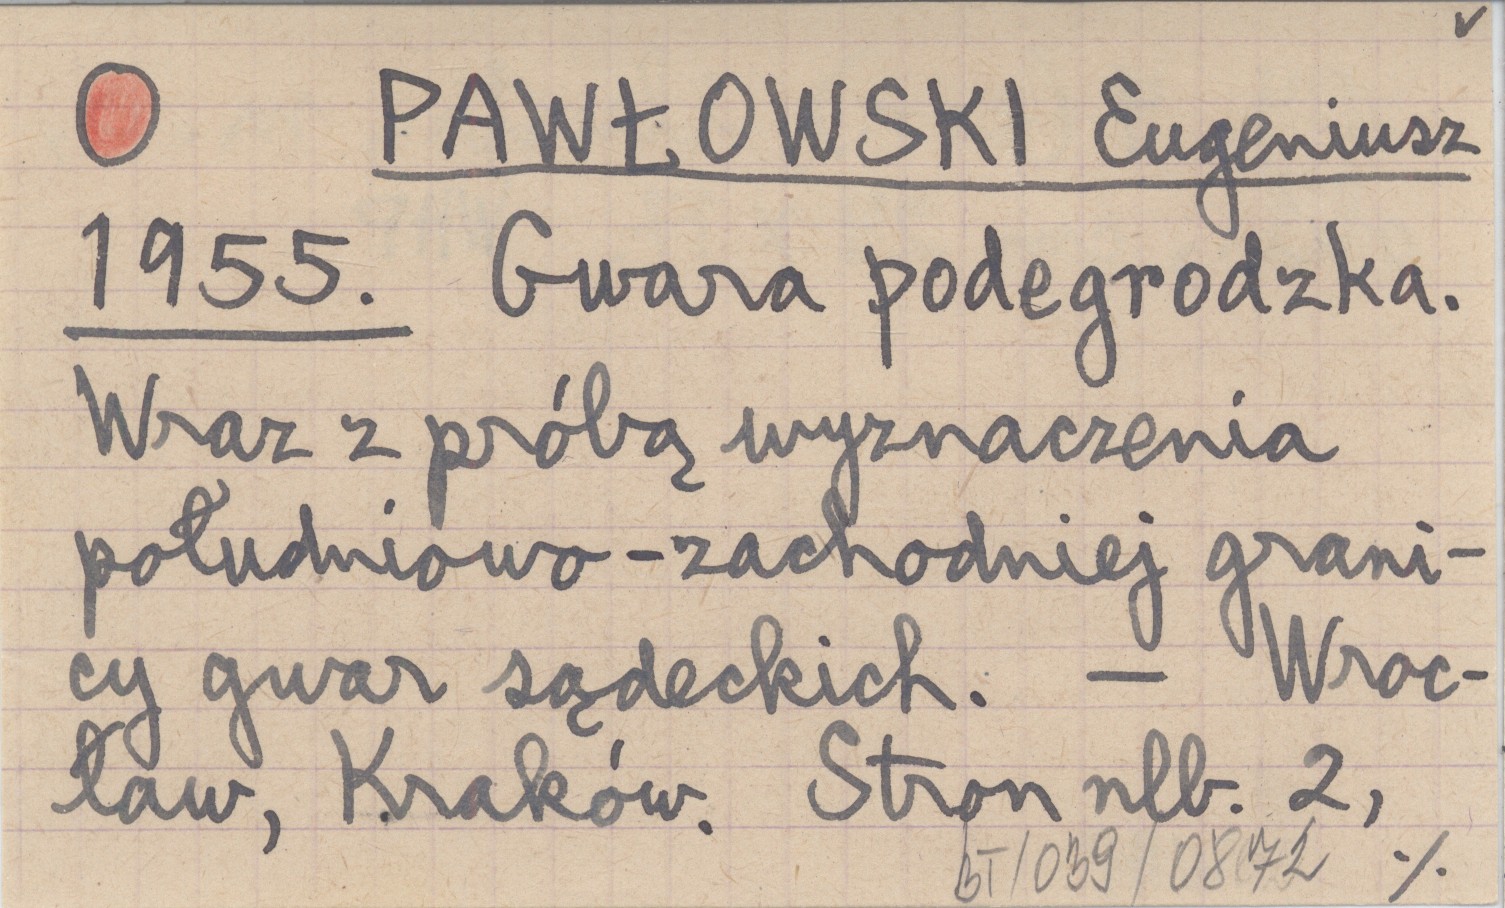 PAWŁOWSKI Eugeniusz
1955. Gwara podegrodzka.
Wraz z próbą wyznaczenia
południowo-zachodniej grani-
cy gwar sądeckich. — Wroc-
ław, Kraków. Stron nlb. 2,
BT/039/0872 ./.